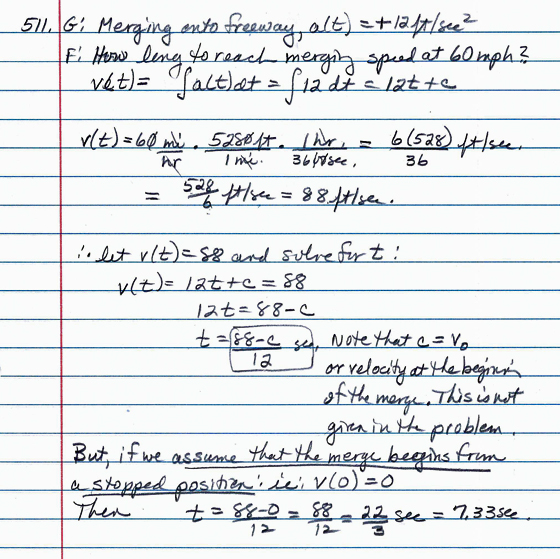 511. G: Merging onto freeway, a(t) = +12 ft/sec²
F: How long to reach merging speed at 60 mph?
v(t) = ∫a(t)dt = ∫12 dt = 12t + c
v(t) = 60 mi/hr · 5280 ft/1 mi. · 1 hr./3600 sec. = 6(528)/36 ft/sec.
= 528/6 ft/sec = 88 ft/sec.
∴ let v(t) = 88 and solve for t:
v(t) = 12t + c = 88
12t = 88 - c
t = 88-c/12 sec, Note that c = v₀
or velocity at the beginnin
of the merge. This is not
given in the problem.
But, if we assume that the merge begins from
a stopped position: ie: v(0) = 0
Then t = 88-0/12 = 88/12 = 22/3 sec = 7.33 sec.